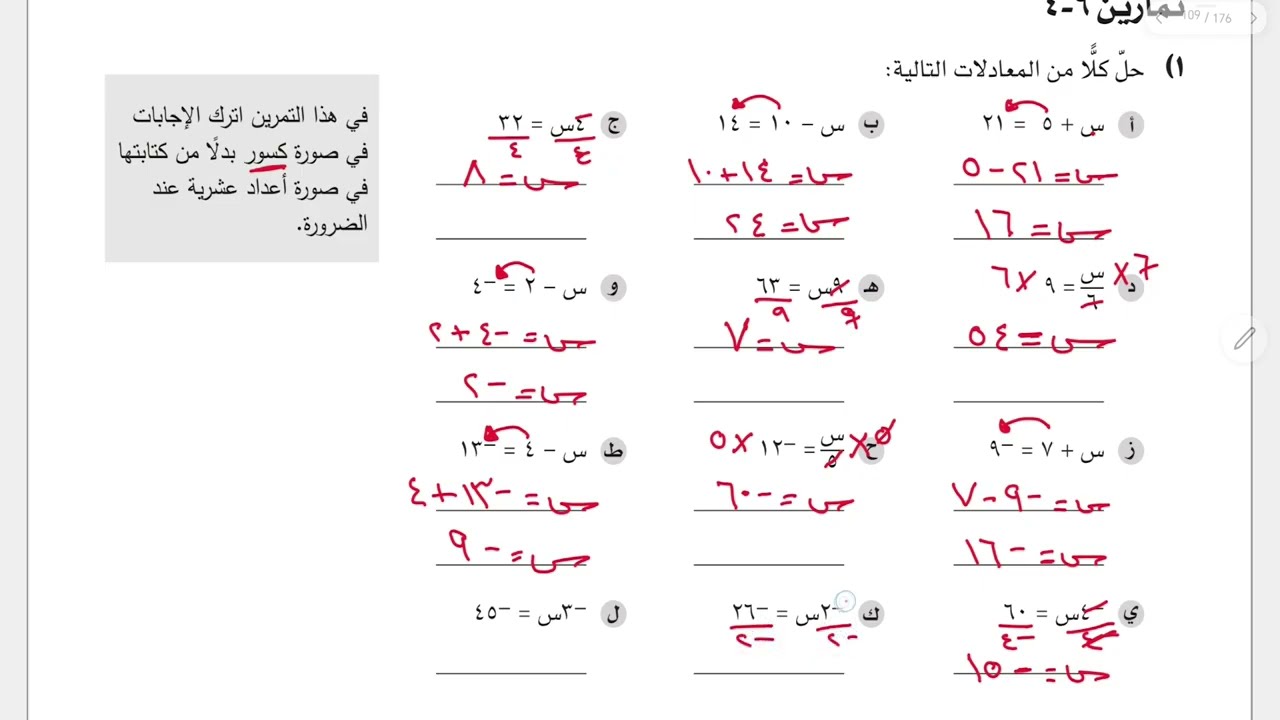 تمارين ٦-٤
109 / 176
١) حلّ كلًّا من المعادلات التالية:
في هذا التمرين اترك الإجابات
في صورة كسور بدلًا من كتابتها
في صورة أعداد عشرية عند
الضرورة.
أ س + ٥ = ٢١
س = ٢١ - ٥
س = ١٦
ب س - ١٠ = ١٤
س = ١٤ + ١٠
س = ٢٤
ج ٤س/٤ = ٣٢/٤
س = ٨
د ٦× س/٦ = ٩ ×٦
س = ٥٤
هـ ٩س/٩ = ٦٣/٩
س = ٧
و س - ٢ = -٤
س = -٤ + ٢
س = -٢
ز س + ٧ = -٩
س = -٩ - ٧
س = -١٦
ح ٥× س/٥ = -١٢ ×٥
س = -٦٠
ط س - ٤ = -١٣
س = -١٣ + ٤
س = -٩
ي -٤س/-٤ = ٦٠/-٤
س = -١٥
ك -٢س/-٢ = -٢٦/-٢
ل -٣س = -٤٥